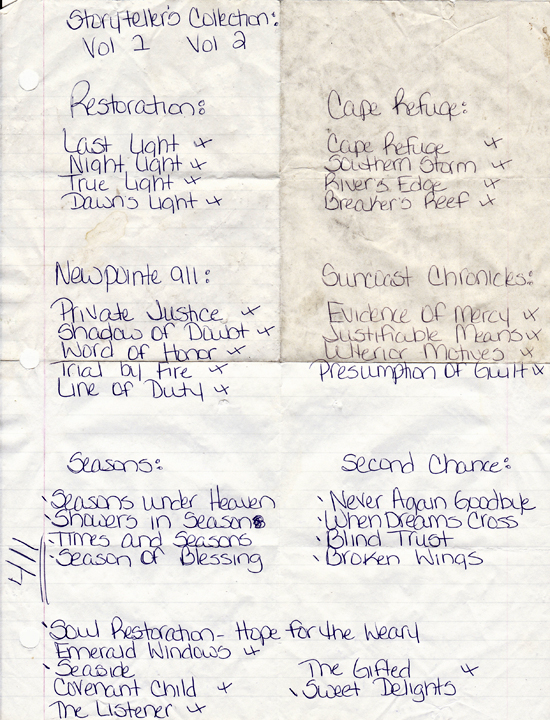 Storyteller's Collection:
Vol 1 Vol 2
Restoration:
Last Light x
Night Light x
True Light x
Dawn's Light x
Cape Refuge:
Cape Refuge x
Southern Storm x
River's Edge x
Breaker's Reef x
Newpointe 911:
Private Justice x
Shadow of Doubt x
Word of Honor x
Trial by Fire x
Line of Duty x
Suncoast Chronicles:
Evidence of Mercy x
Justifiable Means x
Ulterior Motives x
Presumption of Guilt x
Seasons:
Seasons under Heaven
Showers in Season
Times and Seasons
Season of Blessing
Second Chance:
Never Again Goodbye
When Dreams Cross
Blind Trust
Broken Wings
4/11
Soul Restoration - Hope for the Weary
Emerald Windows x
Seaside
Covenant Child x
The Listener x
The Gifted x
Sweet Delights